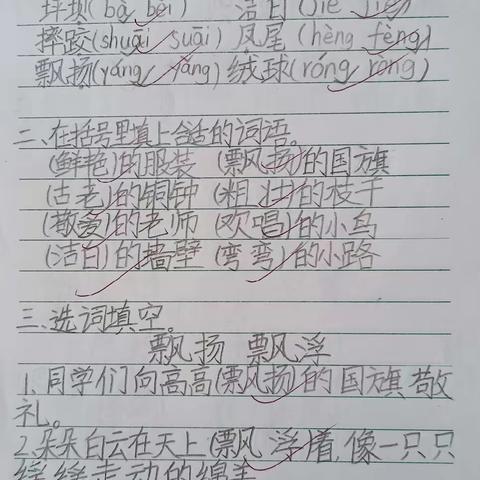 坪坝(bà bèi) 洁白(jié jié)
摔跤(shuāi suāi) 凤尾(hèng fèng)
飘扬(yáng yǎng) 绒球(róng ròng)
二、在括号里填上合适的词语。
(鲜艳)的服装 (飘扬)的国旗
(古老)的铜钟 (粗壮)的枝干
(敬爱)的老师 (欢唱)的小鸟
(洁白)的墙壁 (弯弯)的小路
三、选词填空。
飘扬 飘浮
1、同学们向高高(飘扬)的国旗敬
礼。
2、朵朵白云在天上(飘浮)着,像一只只
走动的绵羊